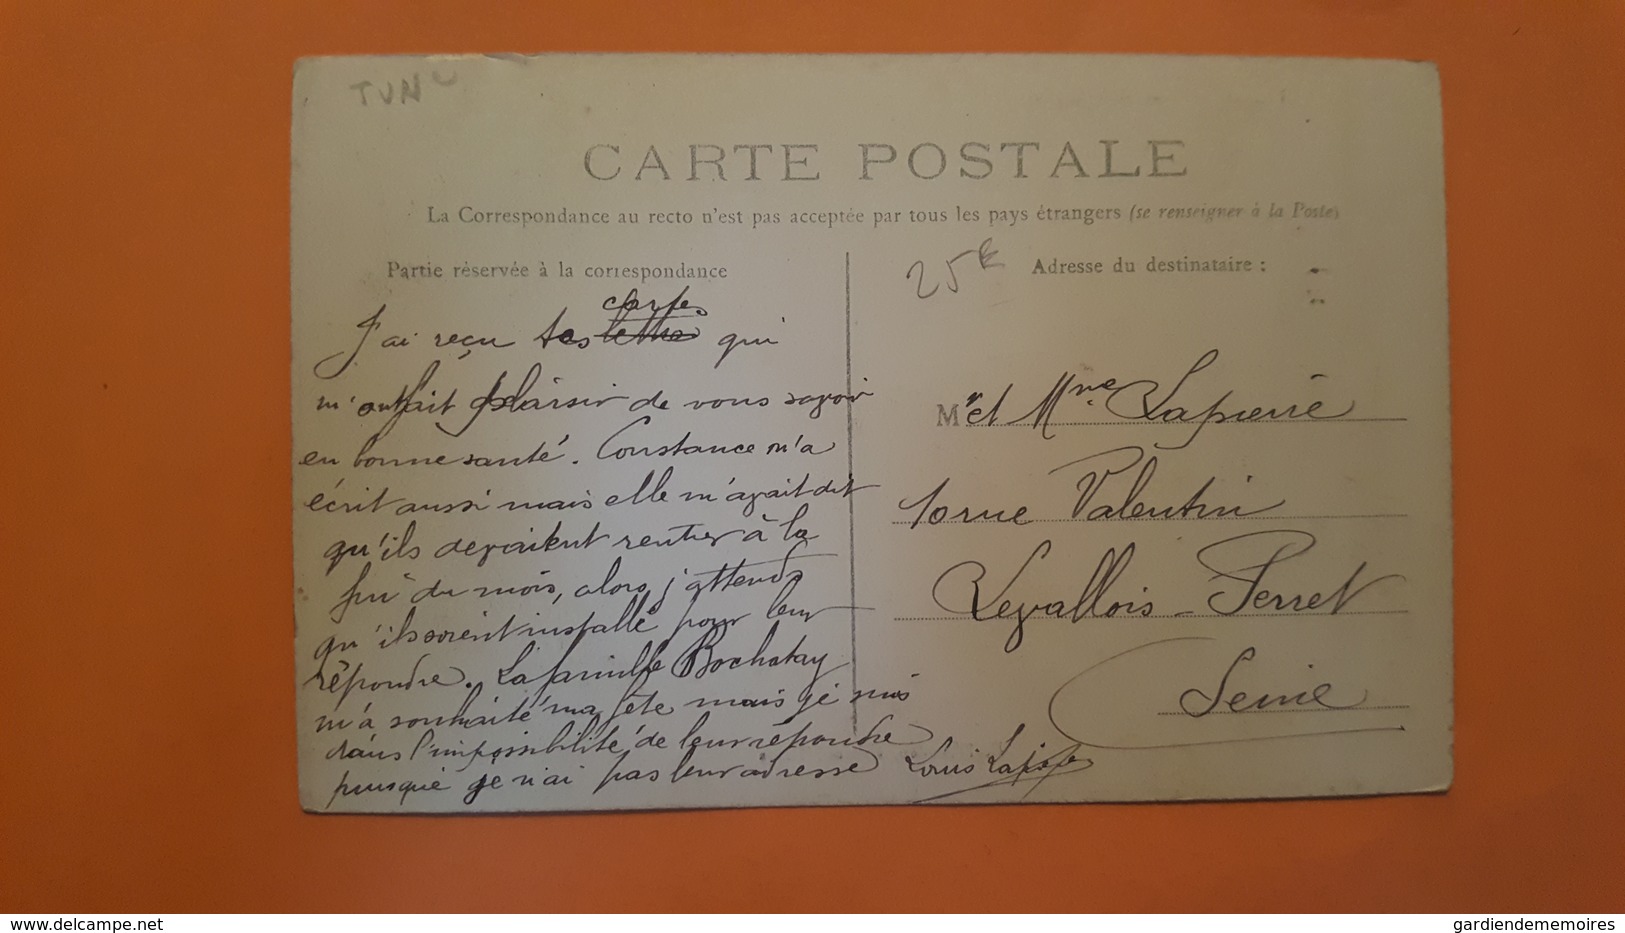 TUN
CARTE POSTALE
La Correspondance au recto n'est pas acceptée par tous les pays étrangers (se renseigner à la Poste)
Partie réservée à la correspondance
25
Adresse du destinataire :
cartes
J'ai reçu tes lettre qui
m'ont fait plaisir de vous savoir
en bonne santé. Constance m'a
écrit aussi mais elle m'avait dit
qu'ils devaient rentrer à la
fin du mois, alors j'attends
qu'ils soient installé pour leur
répondre. La famille Bochatay
m'a souhaité ma fête mais je suis
dans l'impossibilité de leur répondre
puisque je n'ai pas leur adresse Louis Lapierre
Mr et Mme Lapierre
10 rue Valentin
Levallois-Perret
Seine
www.delcampe.net
gardiendememoires